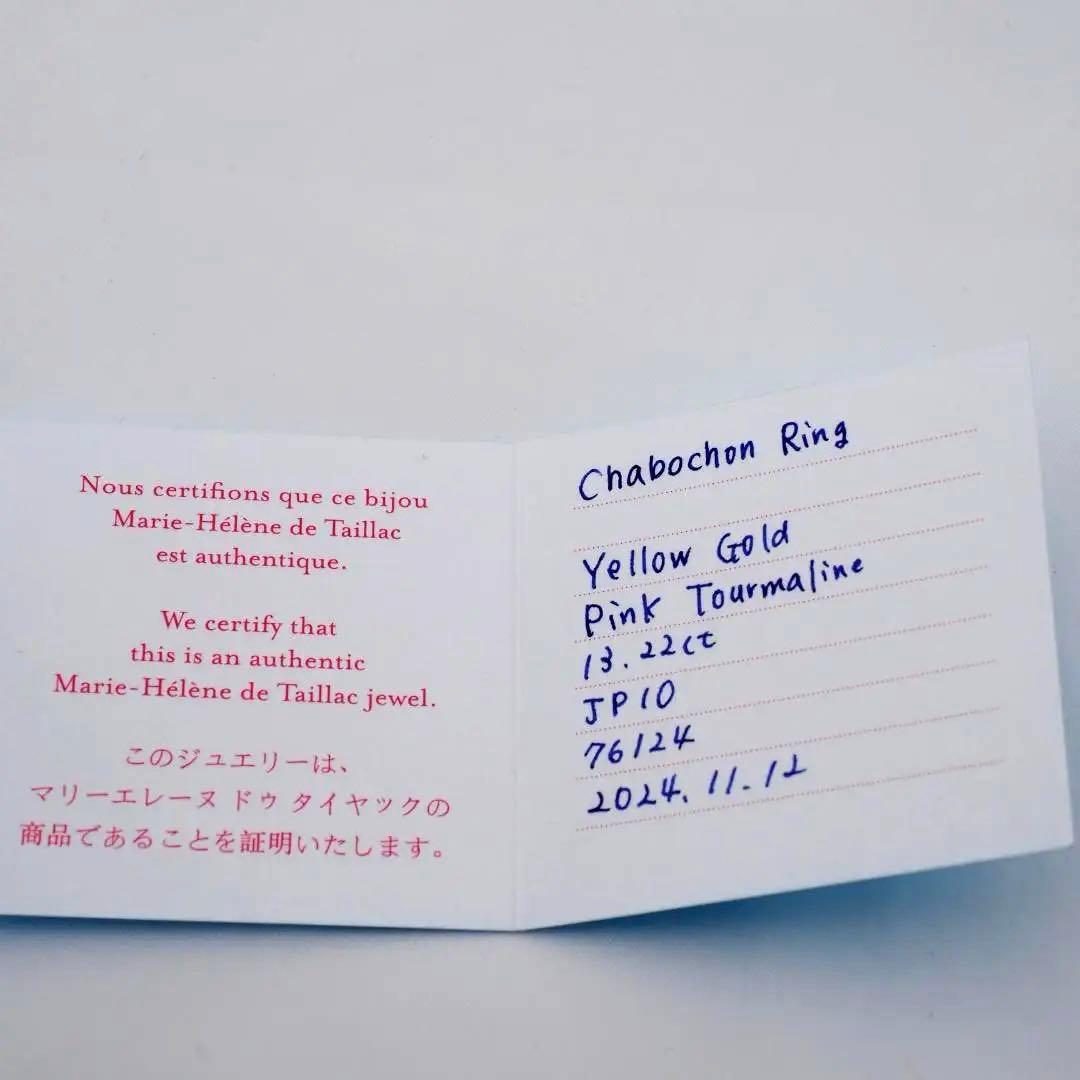 Nous certifions que ce bijou
Marie-Hélène de Taillac
est authentique.
We certify that
this is an authentic
Marie-Hélène de Taillac jewel.
このジュエリーは、
マリーエレーヌ ドゥ タイヤックの
商品であることを証明いたします。
Chabochon Ring
Yellow Gold
Pink Tourmaline
13.22ct
JP10
76124
2024.11.12